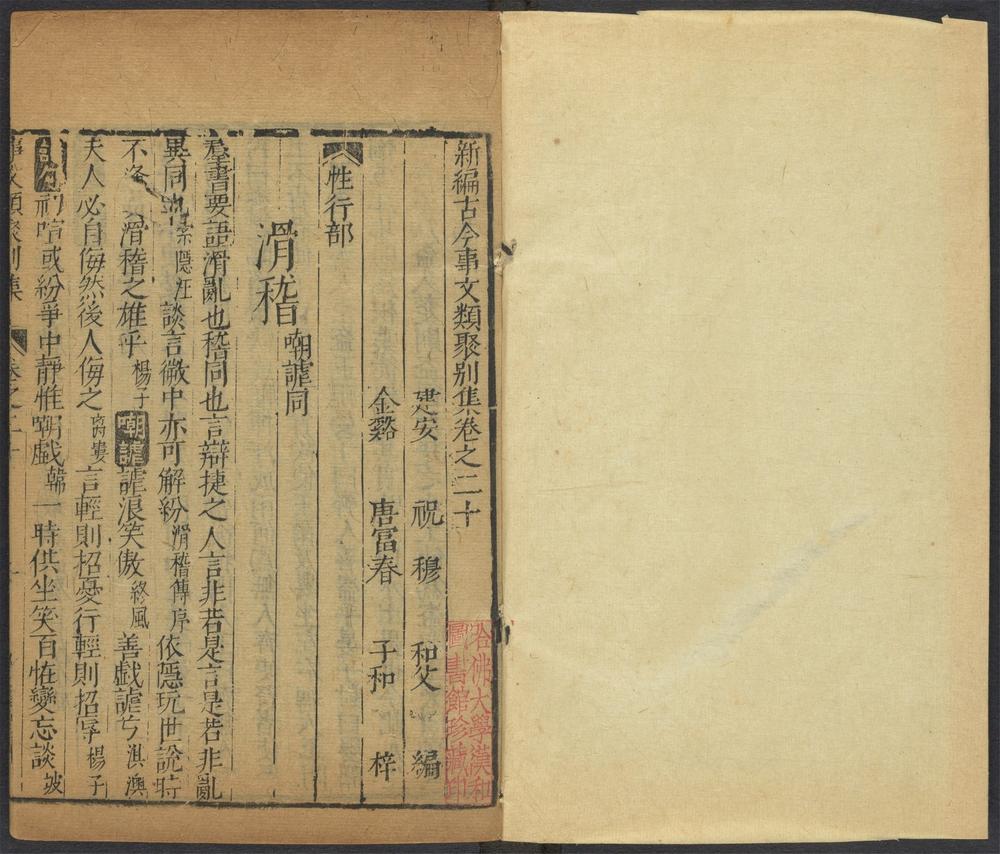 新編古今事文類聚别集卷之二十
建安 祝 穆 和父 編
金谿 唐富春 子和 梓
性行部
滑稽 嘲謔同
羣書要語滑亂也稽同也言辯捷之人言非若是言是若非亂
異同也索隱注談言微中亦可解紛滑稽傳序依隱玩世詭時
不逢 滑稽之雄乎楊子嘲謔謔浪笑傲終風善戱謔兮淇澳
夫人必自侮然後人侮之离婁言輕則招憂行輕則招辜楊子
初喧或紛爭中靜惟嘲戱韓一時供坐笑百恠變忘談坡
事文類聚别集 卷之二十
哈佛大學漢和
圖書館珍藏印